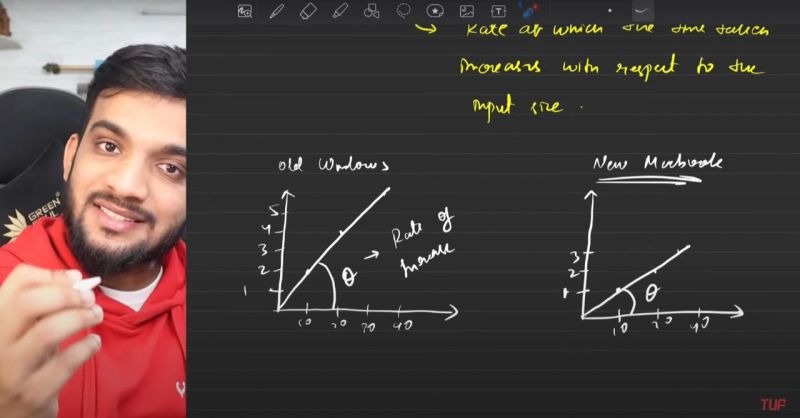 → Rate at which the time taken
increases with respect to the
input size.
Old Windows
New Macbook
5
4
3
2
1
10 20 30 40
θ → Rate of
increase
3
2
1
10 20 40
θ
GREEN
TUF